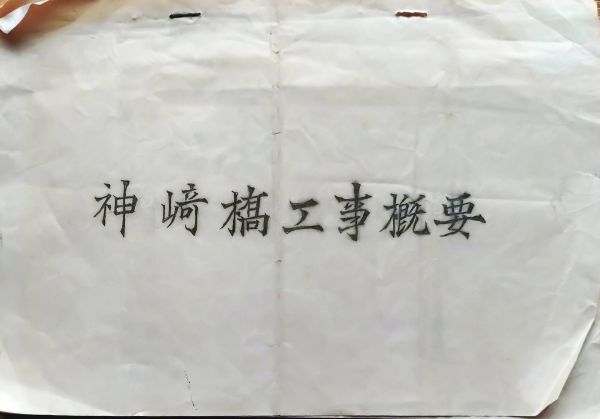 神﨑橋工事概要